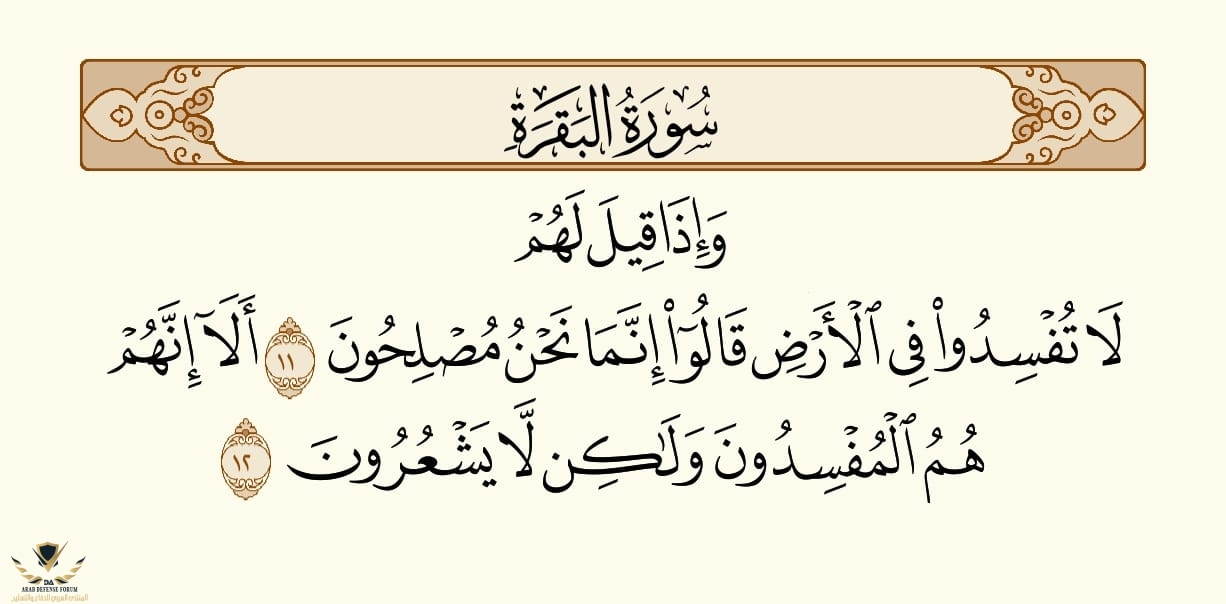 سُورَةُ البَقَرَةِ
وَإِذَا قِيلَ لَهُمۡ
لَا تُفۡسِدُواْ فِي ٱلۡأَرۡضِ قَالُوٓاْ إِنَّمَا نَحۡنُ مُصۡلِحُونَ ١١ أَلَآ إِنَّهُمۡ
هُمُ ٱلۡمُفۡسِدُونَ وَلَٰكِن لَّا يَشۡعُرُونَ ١٢
DA
ARAB DEFENSE FORUM
المنتدى العربي للدفاع والتسليح